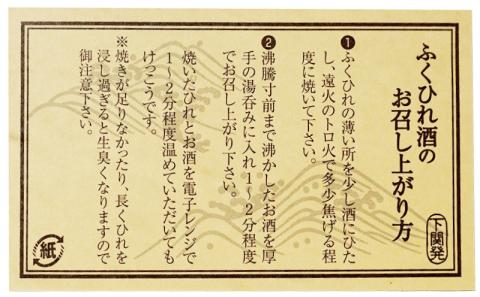 ふくひれ酒の
お召し上がり方
下関発
❶ふくひれの薄い所を少し酒にひた
し、遠火のトロ火で多少焦げる程
度に焼いて下さい。
❷沸騰寸前まで沸かしたお酒を厚
手の湯呑みに入れ1〜2分程度
でお召し上がり下さい。
焼いたひれとお酒を電子レンジで
1〜2分程度温めていただいても
けっこうです。
※焼きが足りなかったり、長くひれを
浸し過ぎると生臭くなりますので
御注意下さい。
紙